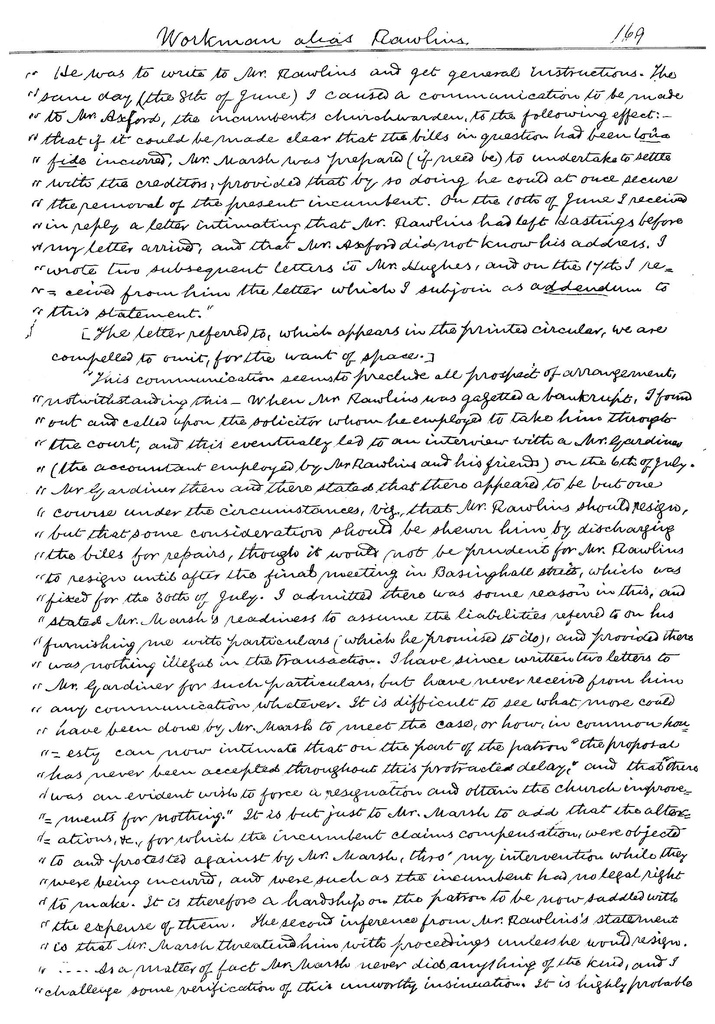 Workman alias Rawlins. 169
" He was to write to Mr. Rawlins and get general instructions. The
" same day (the 8th of June) I caused a communication to be made
" to Mr. Axford, the incumbent's churchwarden, to the following effect:—
" that if it could be made clear that the bills in question had been bona
" fide incurred, Mr. Marsh was prepared (if need be) to undertake to settle
" with the creditors, provided that by so doing he could at once secure
" the removal of the present incumbent. On the 10th of June I received
" in reply a letter intimating that Mr. Rawlins had left Hastings before
" my letter arrived, and that Mr. Axford did not know his address. I
" wrote two subsequent letters to Mr. Hughes, and on the 17th I re=
" = ceived from him the letter which I subjoin as addendum to
" this statement."
[The letter referred to, which appears in the printed circular, we are
compelled to omit, for the want of space.]
"This communication seems to preclude all prospect of arrangement,
" notwithstanding this — When Mr Rawlins was gazetted a bankrupt, I found
" out and called upon the solicitor whom he employed to take him through
" the court, and this eventually led to an interview with a Mr. Gardiner
" (the accountant employed by Mr Rawlins and his friends) on the 6th of July.
" Mr Gardiner then and there stated that there appeared to be but one
" course under the circumstances, viz., that Mr. Rawlins should resign,
" but that some consideration should be shewn him by discharging
" the bills for repairs, though it would not be prudent for Mr. Rawlins
" to resign until after the final meeting in Basinghall street, which was
" fixed for the 30th of July. I admitted there was some reason in this, and
" stated Mr. Marsh's readiness to assume the liabilities referred to on his
" furnishing me with particulars (which he promised to do), and provided there
" was nothing illegal in the transaction. I have since written two letters to
" Mr. Gardiner for such particulars, but have never received from him
" any communication whatever. It is difficult to see what more could
" have been done by Mr. Marsh to meet the case, or how, in common hon
" = esty can now intimate that on the part of the patron "the proposal
" has never been accepted throughout this protracted delay," and that "there
" was an evident wish to force a resignation and obtain the church improve-
" = ments for nothing." It is but just to Mr. Marsh to add that the alter=
" = ations, &c., for which the incumbent claims compensation, were objected
" to and protested against by Mr. Marsh, thro' my intervention while they
" were being incurred, and were such as the incumbent had no legal right
" to make. It is therefore a hardship on the patron to be now saddled with
" the expense of them. The second inference from Mr. Rawlins's statement
" is that Mr. Marsh threatend him with proceedings unless he would resign.
" ..... As a matter of fact Mr. Marsh never did anything of the kind, and I
" challenge some verification of this unworthy insinuation. It is highly probable